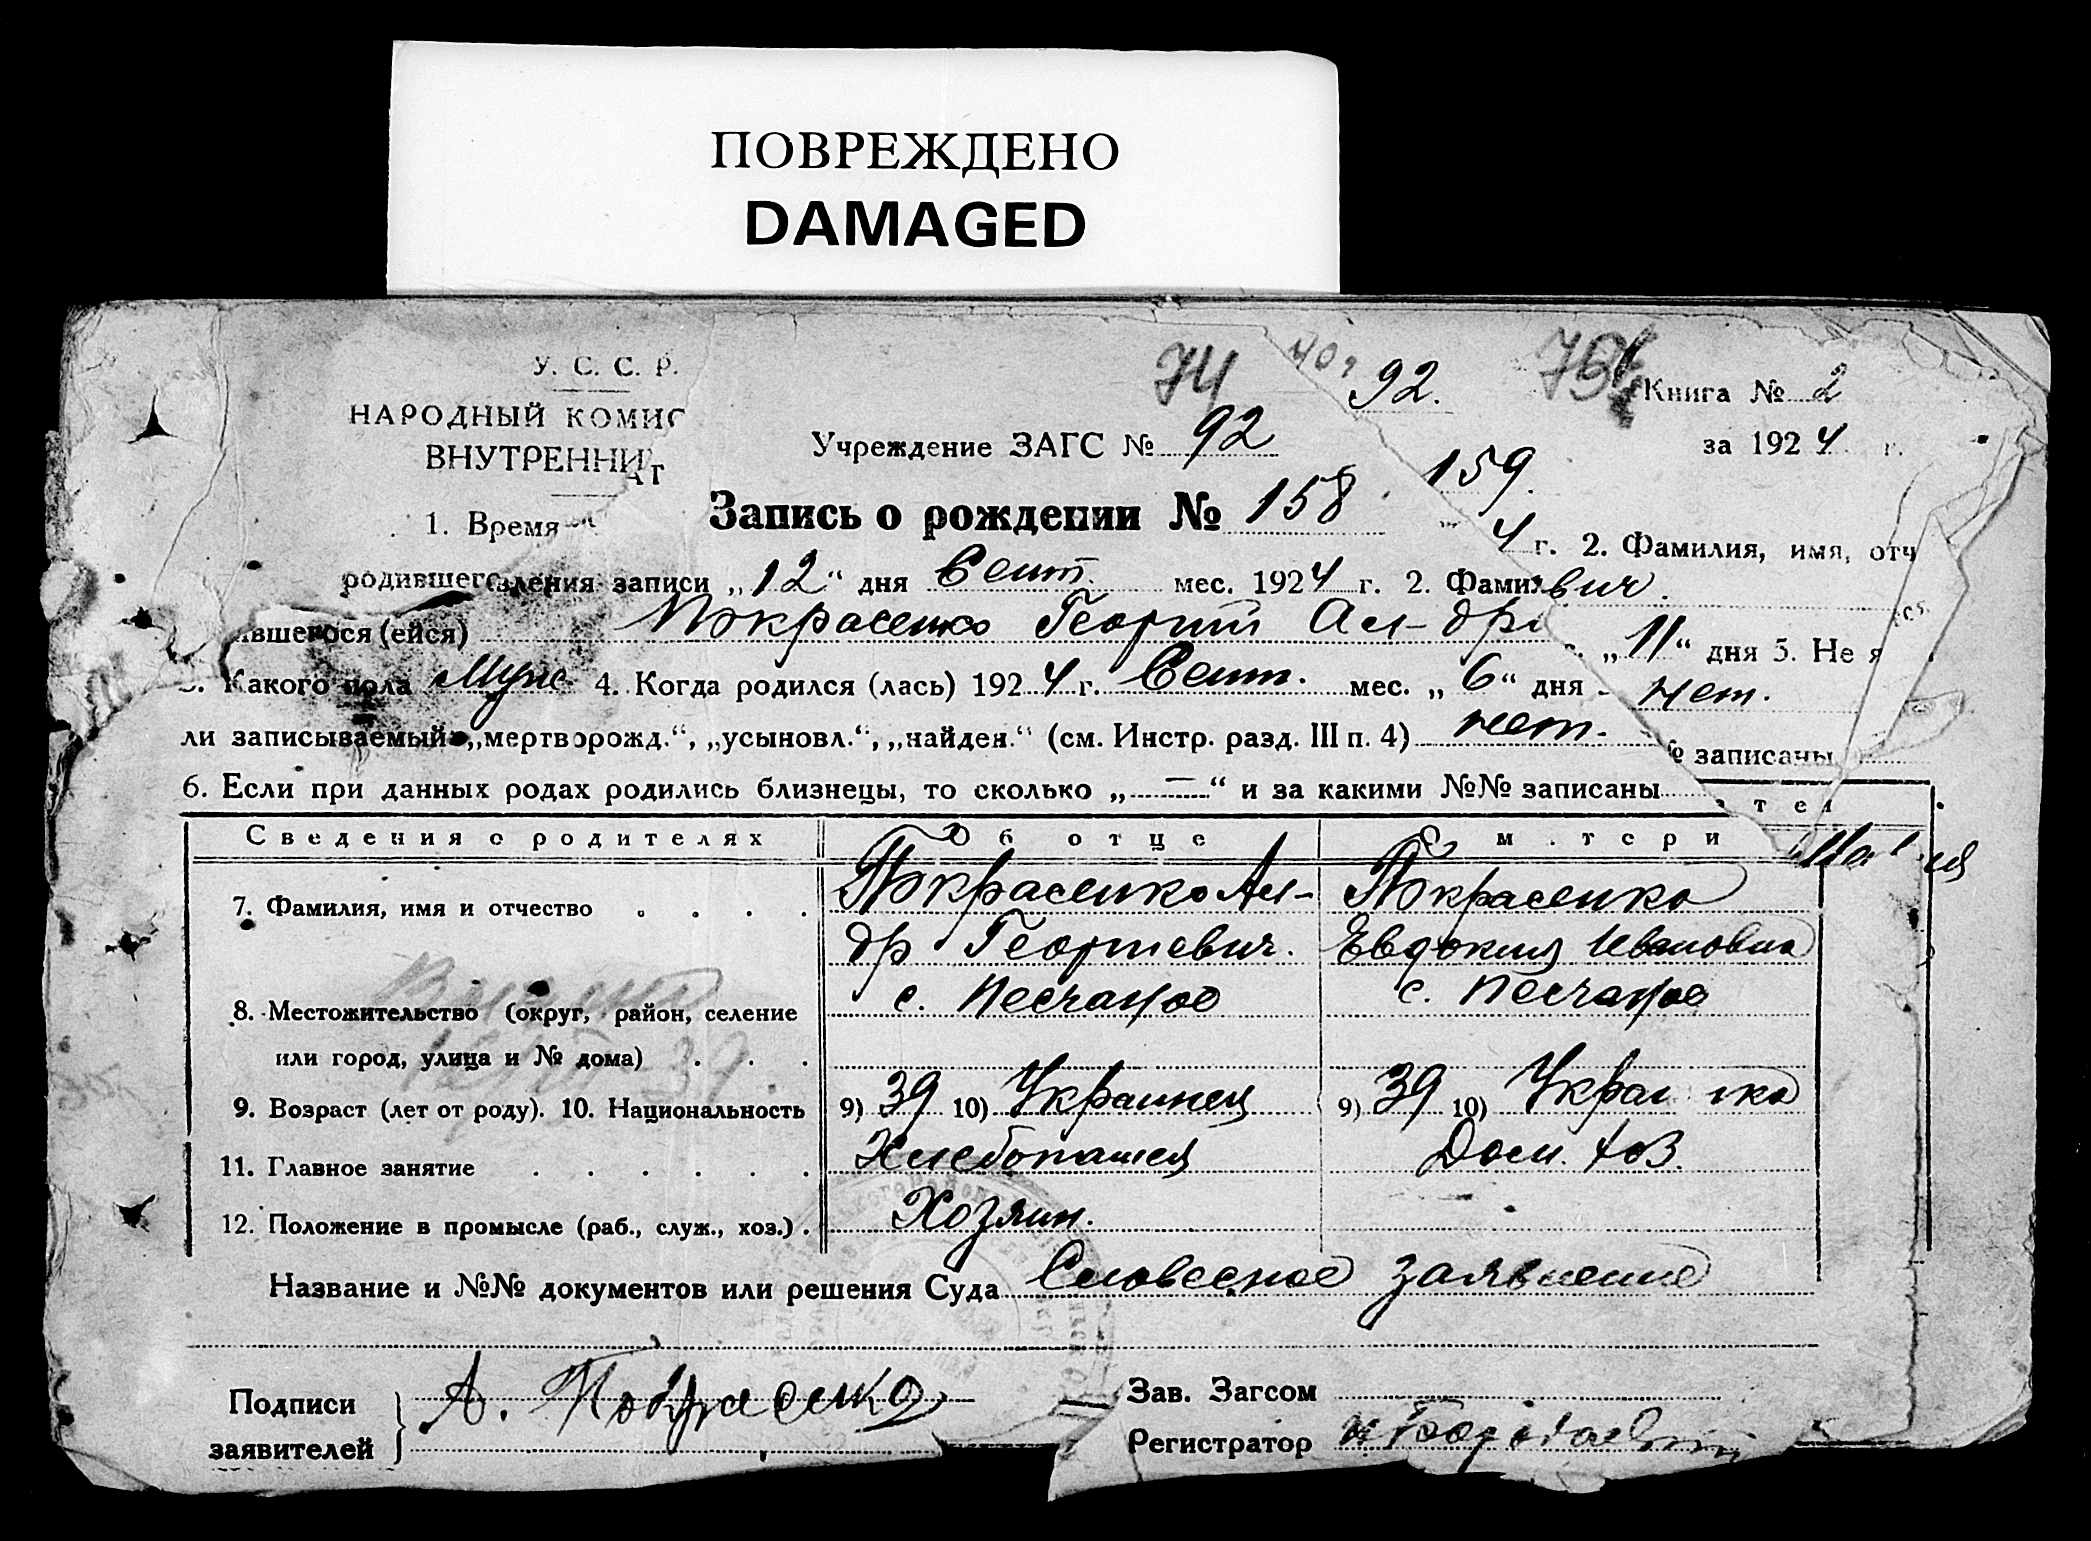 ПОВРЕЖДЕНО
DAMAGED
У. С. С. Р.
74
92.
Книга № 2
НАРОДНЫЙ КОМИС
за 1924 г.
Учреждение ЗАГС № 92
ВНУТРЕННИ
159.
Запись о рождении № 158
1. Время
4 г. 2. Фамилия, имя, отч
родившего
вления записи „12“ дня Сент. мес. 1924 г. 2. Фамил
вич.
ившегося (ейся) Покрасенко Георгий Ал-др
„11“ дня 5. Не я
3. Какого пола Муж. 4. Когда родился (лась) 1924 г. Сент. мес. „6“ дня
нет.
ли записываемый „мертворожд.“, „усыновл.“, „найден.“ (см. Инстр. разд. III п. 4) нет.
№ записаны
6. Если при данных родах родились близнецы, то сколько „—“ и за какими №№ записаны
Сведения о родителях Об отце О м.тери
7. Фамилия, имя и отчество . . . . Покрасенко Ал- Покрасенко
др Георгиевич. Евдокия Ивановна
8. Местожительство (округ, район, селение с. Песчаное с. Песчаное
или город, улица и № дома) . . .
9. Возраст (лет от роду). 10. Национальность 9) 39 10) Украинец 9) 39 10) Украи нка
11. Главное занятие . . . . . . Хлебопашец Дом. хоз.
12. Положение в промысле (раб., служ., хоз.) . Хозяин.
Название и №№ документов или решения Суда Словесное заявление
Подписи А. Покрасенко Зав. Загсом
заявителей Регистратор